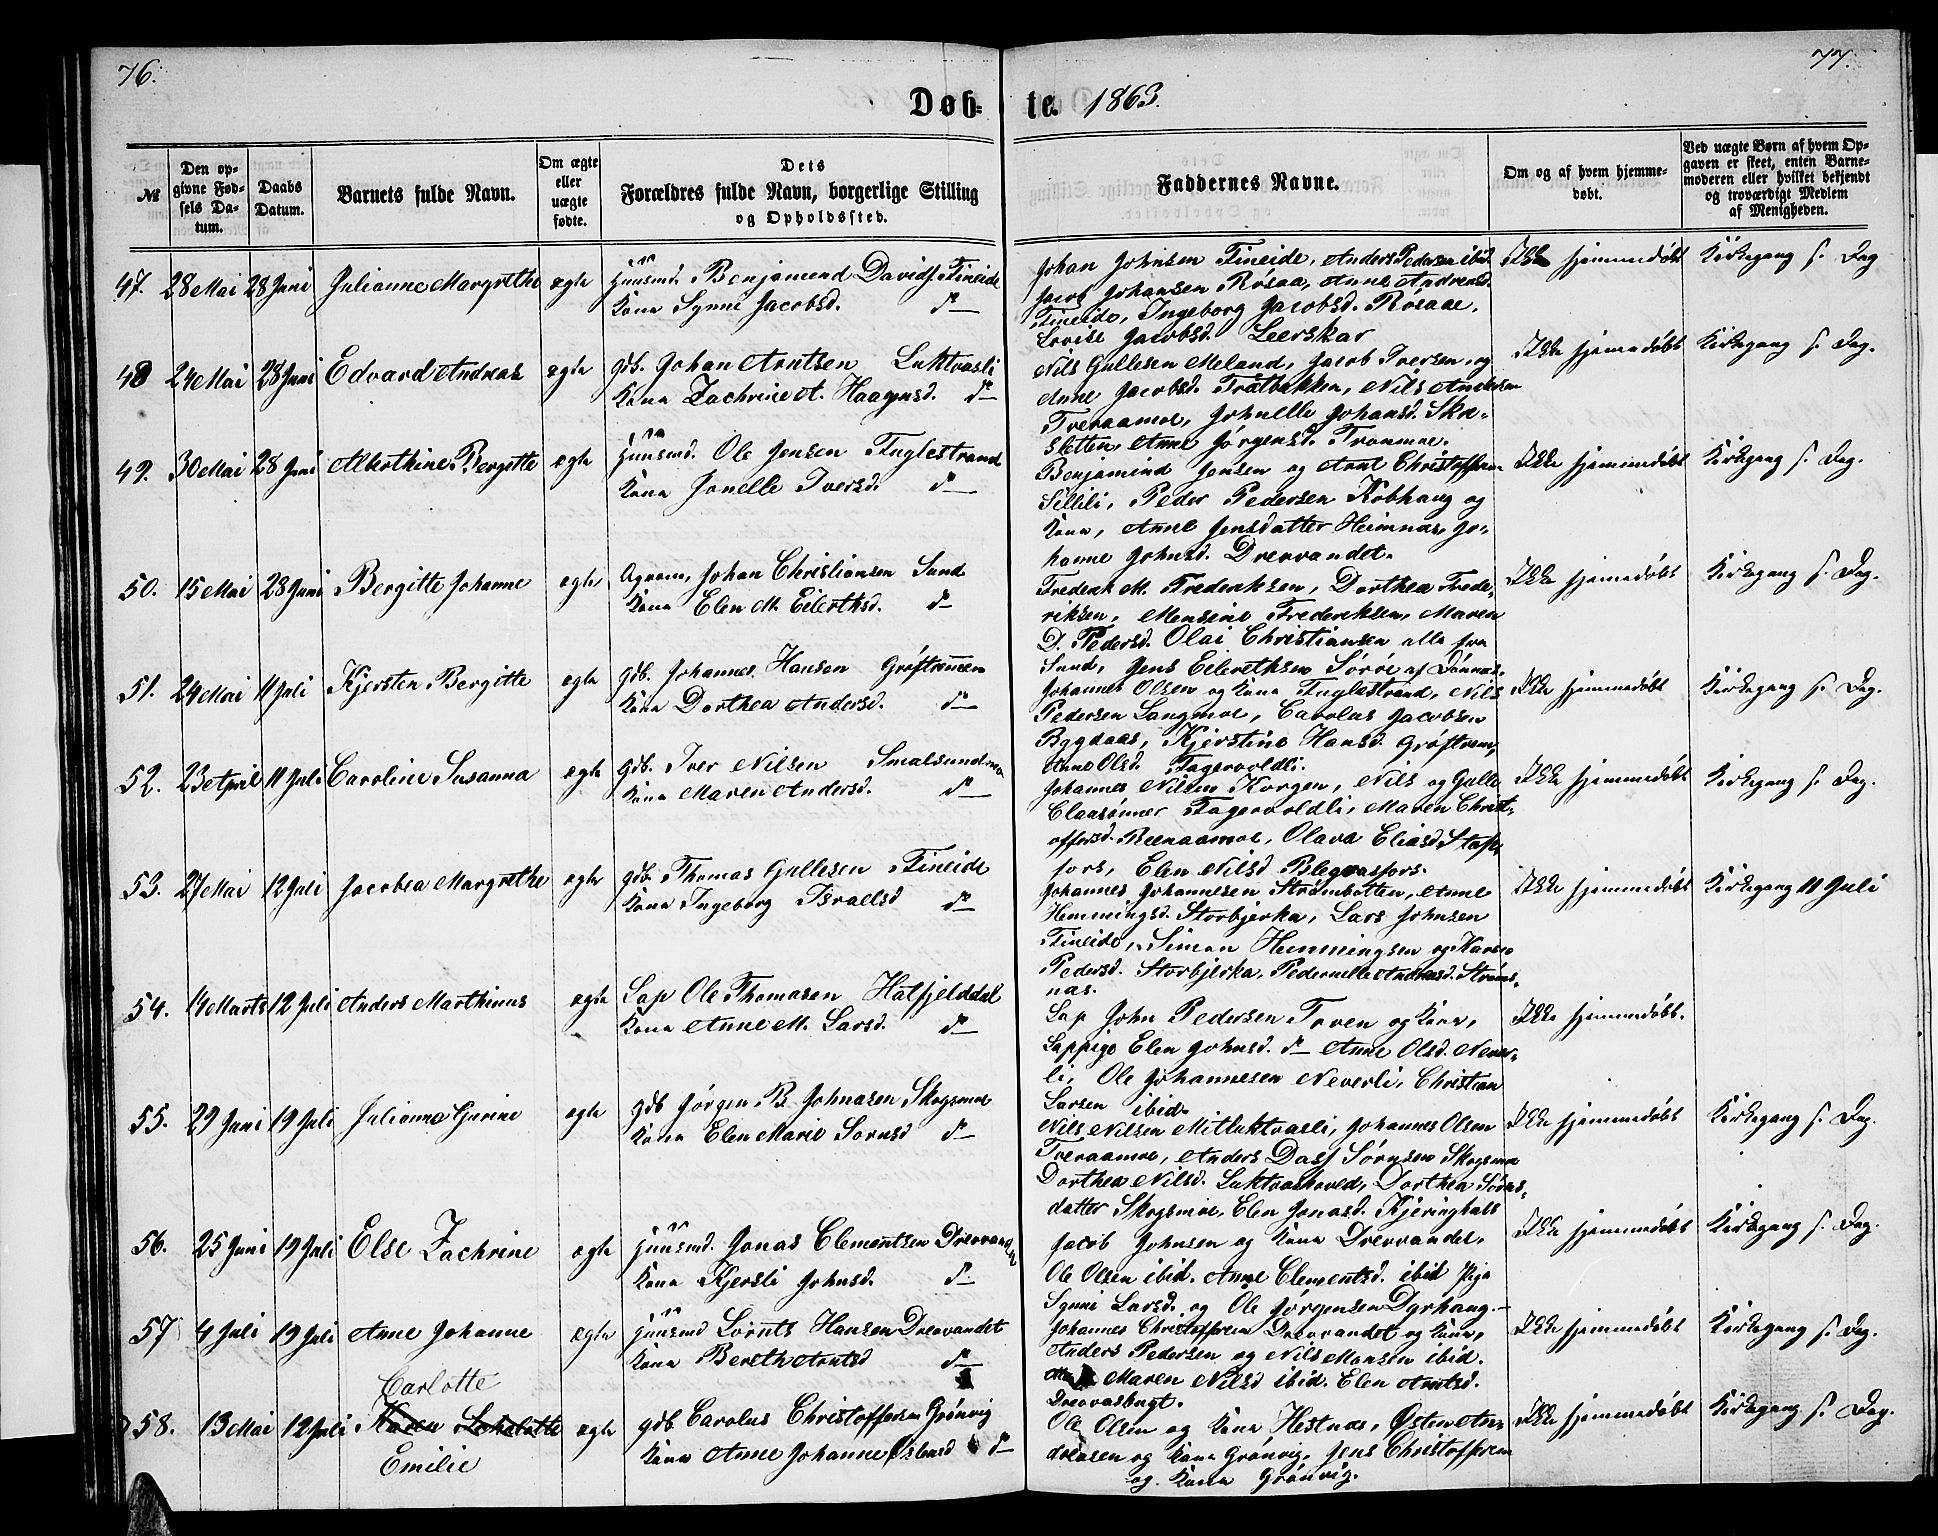 76.
77.
Døb-
te. 1863.
№
Den op-
givne Fød-
sels Da-
tum.
Daabs
Datum.
Barnets fulde Navn.
Om ægte
eller
uægte
fødte.
Dets
Forældres fulde Navn, borgerlige Stilling
og Opholdssted.
Faddernes Navne.
Om og af hvem hjemme-
døbt.
Ved uægte Børn af hvem Op-
gaven er skeet, enten Barne-
moderen eller hvilket bekjendt
og troværdigt Medlem
af Menigheden.
47. 28 Mai 28 Juni Julianne Margrethe ægte Huusmd. Benjamend Davids. Fineide
Kona Synne Jacobsd. do
Johan Johnsen Fineide, Anders Pedersen ibid.
Jacob Johansen Rösaa, Anne Andreasd.
Fineide, Ingeborg Jacobsd. Rösaae,
Lovise Jacobsd. Leerskar
Ikke hjemmedøbt Kirkegang s. Dag
48 24 Mai 28 Juni Edvard Andreas ægte gdb. Johan Arntsen Luktvasli
Kona Zachrine A. Haagensd. do
Nils Gullesen Meland, Jacob Iversen, og
Anne Jacobsd. Fratbekken, Nils Andersen
Tveraamoe, Johnelle Johansd. Skæ-
sletten, Anne Jörgensd. Tronmoe.
Ikke hjemmedøbt Kirkegang s. Dag.
49. 30 Mai 28 Juni Alberthine Bergitte ægte Huusmd. Ole Jensen Fuglestrand
Kona Jonelle Iversd. do
Benjamind Jensen og Arnt Christoffersen
Sillili, Peder Pedersen Kobhaug og
Kona, Anne Jensdatter Heimnas, Jo-
hanne Johnsd. Drevvandet.
Ikke hjemmedøbt Kirkegang s. Dag.
50. 15 Mai 28 Juni Bergitte Johanne ægte Johan Christiansen Sund
Kona Elen M. Eilertsd. do
Frederik M. Frederiksen, Dorthea Frede-
riksen, Mensine Frederiksen, Maren
D. Pedersd. Olai Christiansen alle fra
Sund, Jens Eilerthsen Sörö af Dönnæs.
Ikke hjemmedøbt Kirkegang s. Dag.
51. 24 Mai 11 Juli Kjersten Bergitte ægte gdb. Johannes Hansen Gröftremen
Kona Dorthea Andersd. do
Johannes Olsen og Kona Fuglestrand, Nils
Pedersen Langmoe, Carolus Jacobsen
Bygdaas, Kjerstine Hansd. Gröftrem,
Anne Olsd. Fagervoldli.
Ikke hjemmedøbt Kirkegang s. Dag.
52. 23 April 11 Juli Caroline Susanna ægte gdb. Iver Nilsen Smalsundmo
Kona Maren Andersd. do
Johannes Nilsen Korgen, Nils og Gulle
Claasönner Fagervoldli, Maren Christ-
offersd. Reenaamoe, Olava Eliasd. Stop-
fors, Elen Nilsd Blegvasfors.
Ikke hjemmedøbt Kirkegang s. Dag.
53. 27 Mai 12 Juli Jacobea Margrethe ægte gdb. Thomas Gullesen Fineide
Kona Ingeborg Israelsd do
Johannes Johannesen Strømbotten, Anne
Hemmingsd. Storbjerka, Lars Johnsen
Fineide, Simon Hemmingsen og Karen
Pedersd. Storbjerka, Pedernelle Andreasd. Ströms-
nas.
Ikke hjemmedøbt Kirkegang 11 Juli
54. 14 Marts 12 Juli Anders Marthinus ægte Lap Ole Thomasen Hatfjelddal
Kona Anne M. Larsd. do
Lap John Pedersen Toven og Kona,
Lappige Elen Johnsd. do Anne Olsd. Never-
li, Ole Johannesen Neverli, Christian
Larsen ibid.
Ikke hjemmedøbt.
55. 29 Juni 19 Juli Julianne Gurine ægte gdb Jörgen B. Johnasen Skogsmoe
Kona Elen Marie Sörnsd do
Nils Nilsen Mitluktvasli, Johannes Olsen
Tveraamoe, Anders Dass Sörnsen Skogsmo
Dorthea Nilsd. Luktvashoved, Dorthea Sörns-
datter Skogsmoe, Elen Jonasd. Kjeringhals
Ikke hjemmedøbt Kirkegang s. Dag.
56. 25 Juni 19 Juli Else Zachrine ægte Huusmd. Jonas Clementsen Drevvandet
Kona Kjersti Johnsd. do
Jacob Johnsen og Kona Drevvandet,
Ole Olsen ibid. Anne Clementsd. ibid Pige
Synni Larsd. og Ole Jörgensen Dyrhaug.
Ikke hjemmedøbt Kirkegang s. Dag.
57 4 Juli 19 Juli Anne Johanne ægte Huusmd Lornts Hansen Drevvandet
Kona Bereth Arntsd do
Johannes Christoffersen Drevvandet og Kona,
Anders Pedersen og Nils Monsen ibid.
Maren Nilsd ibid. Elen Arntsd.
Drevvasbugt.
Ikke hjemmedøbt Kirkegang s. Dag.
58. 13 Mai 12 Juli Carlotte
Karen Scharlotte
Emilie
ægte gdb. Carolus Christoffersen Grönvig
Kona Anne Johanne Østensd do
Ole Olsen og Kona Hestnæs, Østen An-
dreasen og Kona Grönvig, Jens Christoffersen
og Kona Grönvig.
Ikke hjemmedøbt Kirkegang s. Dag.